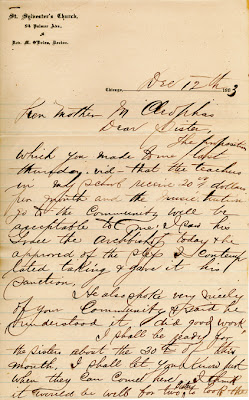 St. Sylvester's Church.
Palmer Ave.,
Rev. M. O'Brien, Rector.
Chicago, Dec 12th 1883
Rev Mother M Cleophas
Dear Sister,
The proposition
which you made to me last
thursday, viz- that the teachers
in my school receive dollars
per month and the
go to the Community will be
acceptable to me, I saw his
Grace the Archbishop today & he
approved of the step I contem-
plated taking & gave it his
Sanction,
He also spoke very nicely
of your Community & said he
understood it did good work
I shall be ready for
the Sisters about the 30th of this
month, I shall let you know just
when they can come here, I think
it would be well for two to look the